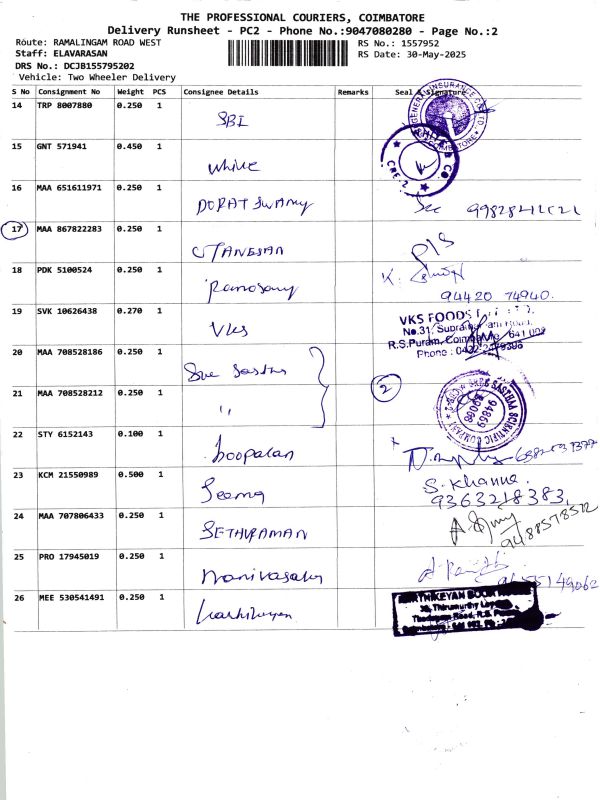 THE PROFESSIONAL COURIERS, COIMBATORE
Delivery Runsheet - PC2 - Phone No.:9047080280 - Page No.:2
Route: RAMALINGAM ROAD WEST
RS No.: 1557952
Staff: ELAVARASAN
RS Date: 30-May-2025
DRS No.: DCJB155795202
Vehicle: Two Wheeler Delivery
S No Consignment No Weight PCS Consignee Details Remarks Seal & Signature
14 TRP 8007880 0.250 1 SBI
15 GNT 571941 0.450 1 White
CBE-2
16 MAA 651611971 0.250 1 DORAI Swamy
17 MAA 867822283 0.250 1 GANESAN
18 PDK 5100524 0.250 1 Ramosamy K.
94420 74940.
19 SVK 10626438 0.270 1 VKS VKS FOODS
No.31,
R.S.Puram,
Phone :
20 MAA 708528186 0.250 1 Sree Sastha
2
21 MAA 708528212 0.250 1 "
SASTHAA SCIENTIFIC COMPANY
94869
22 STY 6152143 0.100 1 boopalan
23 KCM 21550989 0.500 1 Seema S. Khanna
9363218383,
24 MAA 707806433 0.250 1 SETHURAMAN
25 PRO 17945019 0.250 1
26 MEE 530541491 0.250 1 karthikeyan KARTHIKEYAN BOOK